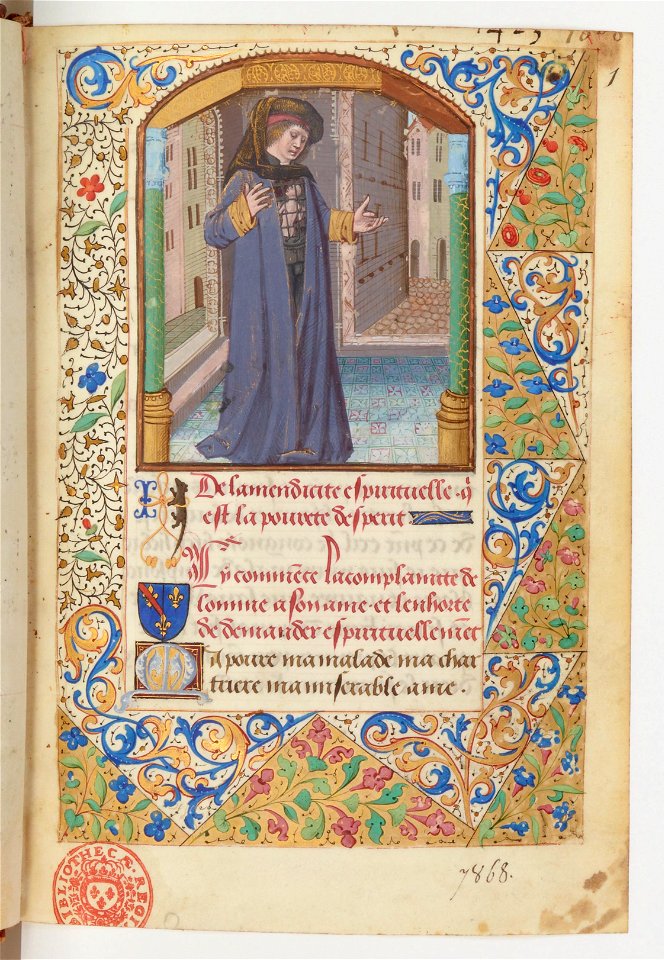 1
De lamendicite espirituelle q̃
est la pourete desperit
Cy commẽce la complaintte de
lomme a son ame et lenhorte
de demander espirituellemẽt
poure ma malade ma char
triere ma miserable ame .
7868.
BIBLIOTHECÆ REGI